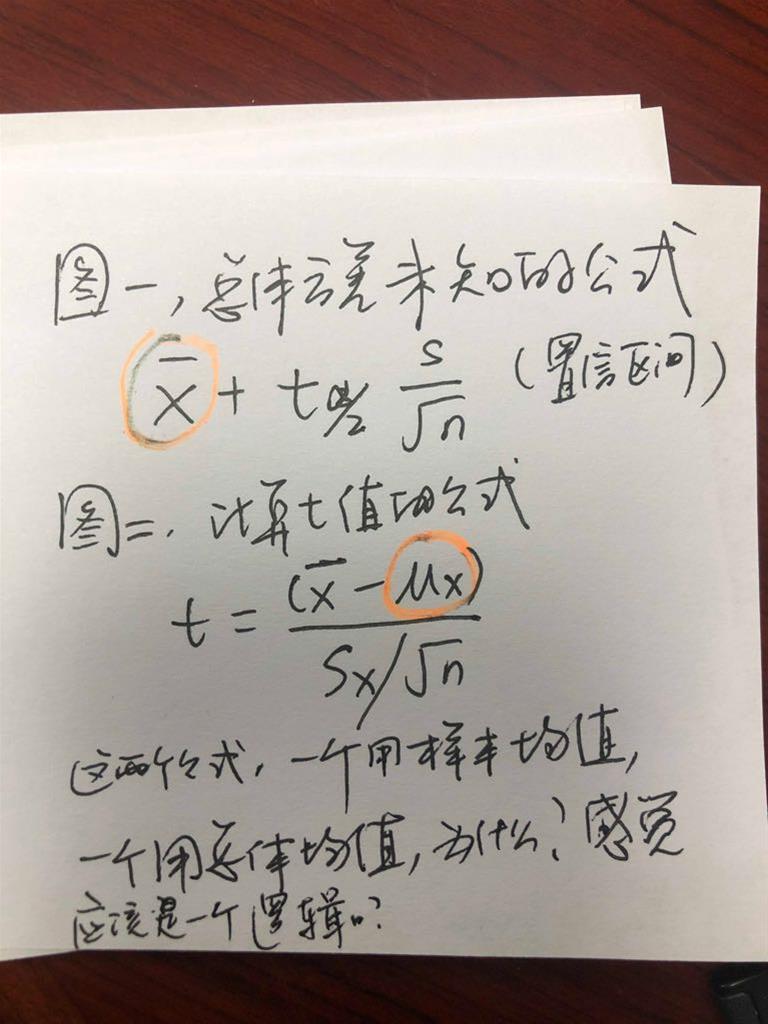 图一,总体方差未知的公式
x̄ + tα/2 s/√n (置信区间)
图二.计算t值的公式
t = (x̄ - μx) / Sx/√n
这两个公式,一个用样本均值,
一个用总体均值,为什么?感觉
应该是一个逻辑吖?